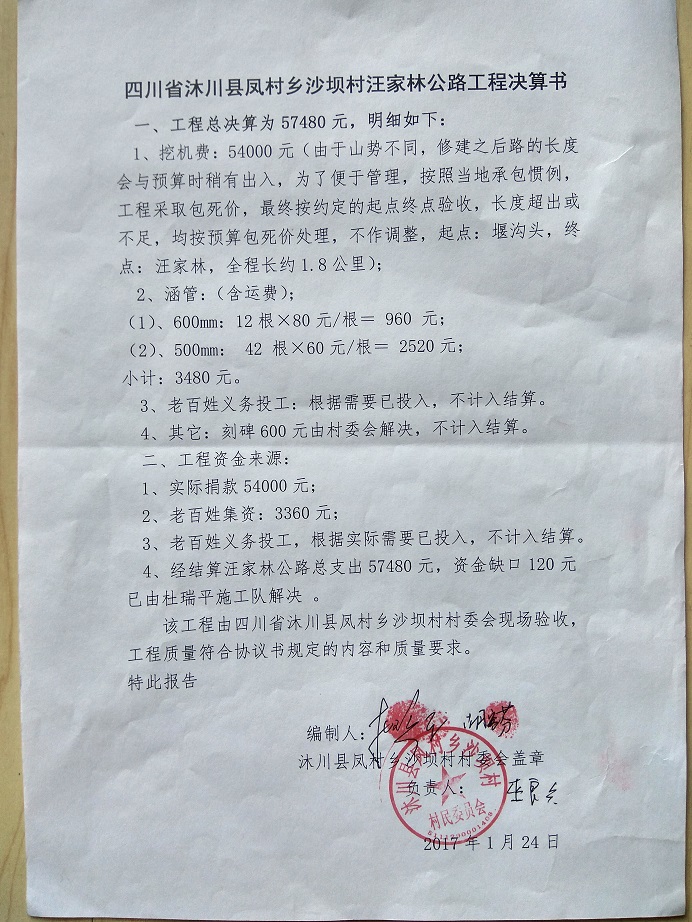 四川省沐川县凤村乡沙坝村汪家林公路工程决算书
一、工程总决算为 57480 元，明细如下：
1、挖机费：54000 元（由于山势不同，修建之后路的长度
会与预算时稍有出入，为了便于管理，按照当地承包惯例，
工程采取包死价，最终按约定的起点终点验收，长度超出或
不足，均按预算包死价处理，不作调整，起点：堰沟头，终
点：汪家林，全程长约1.8公里）；
2、涵管：（含运费）；
（1）、600mm：12 根×80 元/根＝ 960 元；
（2）、500mm： 42 根×60 元/根＝ 2520元；
小计：3480元。
3、老百姓义务投工：根据需要已投入，不计入结算。
4、其它：刻碑 600 元由村委会解决，不计入结算。
二、工程资金来源：
1、实际捐款 54000 元；
2、老百姓集资：3360 元；
3、老百姓义务投工，根据实际需要已投入，不计入结算。
4、经结算汪家林公路总支出 57480 元，资金缺口 120 元
已由杜瑞平施工队解决 。
该工程由四川省沐川县凤村乡沙坝村村委会现场验收，
工程质量符合协议书规定的内容和质量要求。
特此报告
编制人：
沐川县凤村乡沙坝村村委会盖章
负责人：
沐川县凤村乡沙坝村
村民委员会
2017 年 1 月 24 日